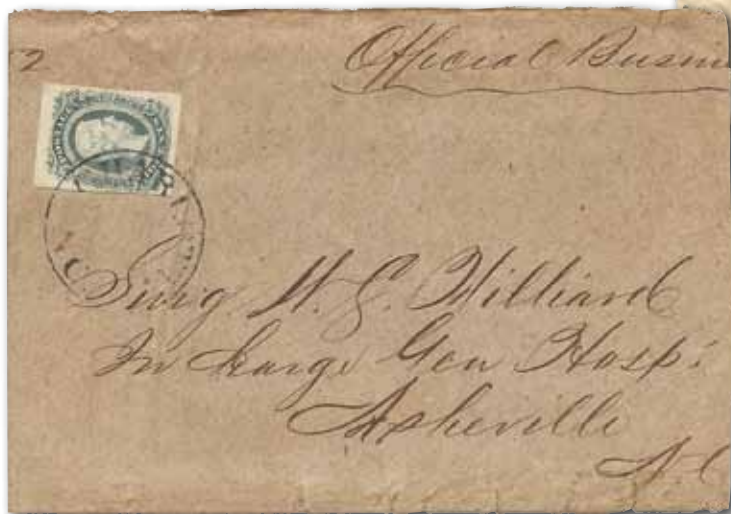 Official Busin
Surg W. L. Hilliard
In Charge Gen Hosp.
Asheville
N.C